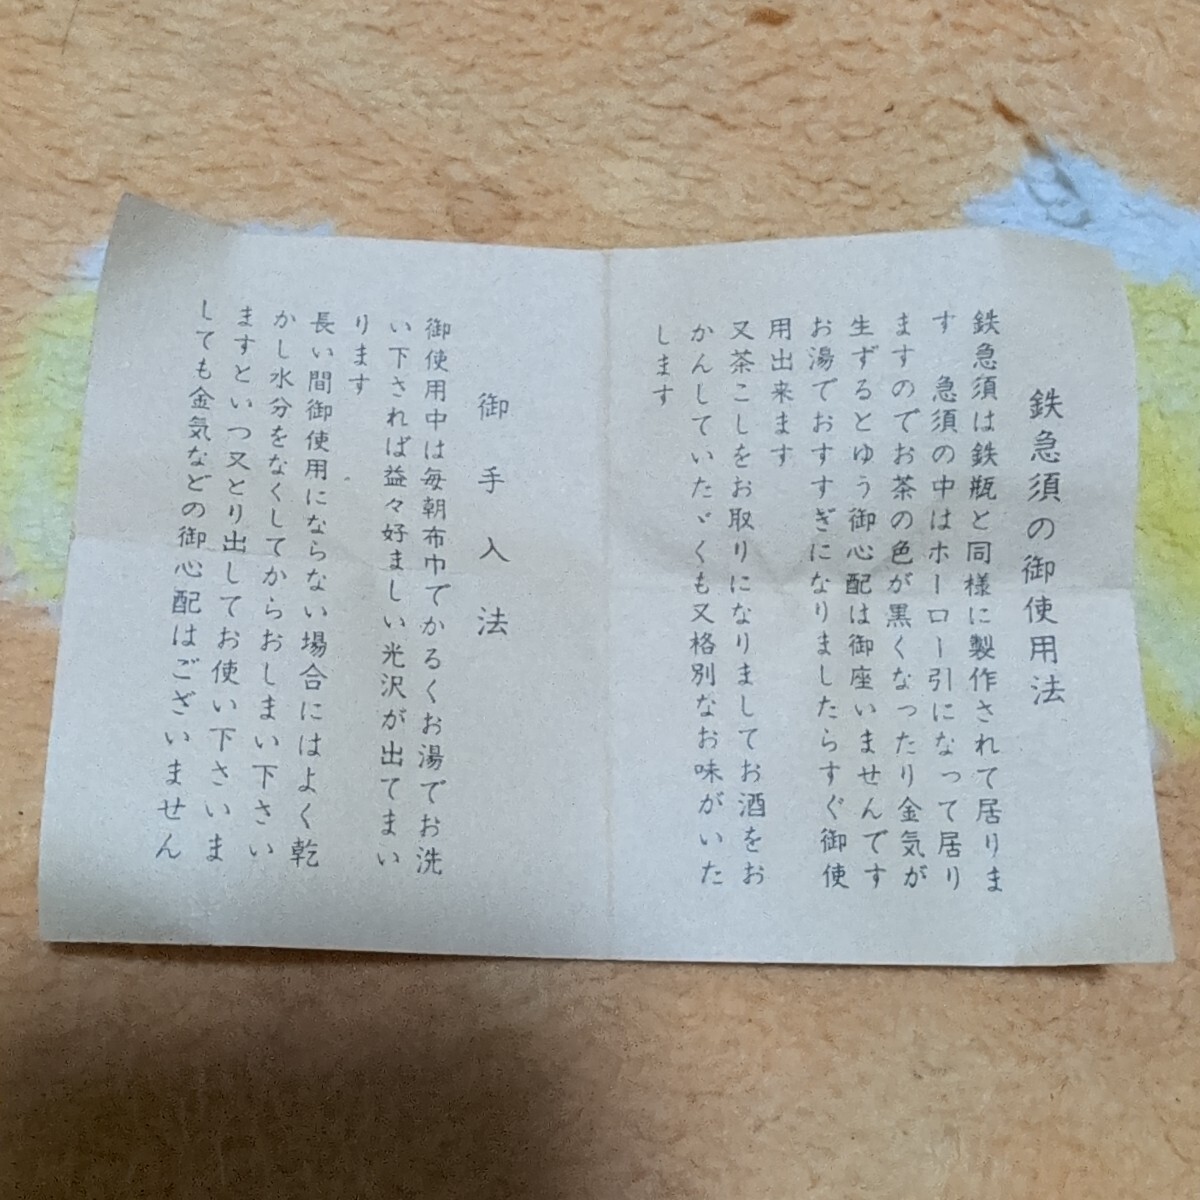 鉄急須の御使用法
鉄急須は鉄瓶と同様に製作されて居りま
す　急須の中はホーロー引になって居り
ますのでお茶の色が黒くなったり金気が
生ずるとゆう御心配は御座いませんです
お湯でおすすぎになりましたらすぐ御使
用出来ます
又茶こしをお取りになりましてお酒をお
かんしていたゞくも又格別なお味がいた
します
御手入法
御使用中は毎朝布巾でかるくお湯でお洗
い下されば益々好ましい光沢が出てまい
ります
長い間御使用にならない場合にはよく乾
かし水分をなくしてからおしまい下さい
ますといつ又とり出してお使い下さいま
しても金気などの御心配はございません